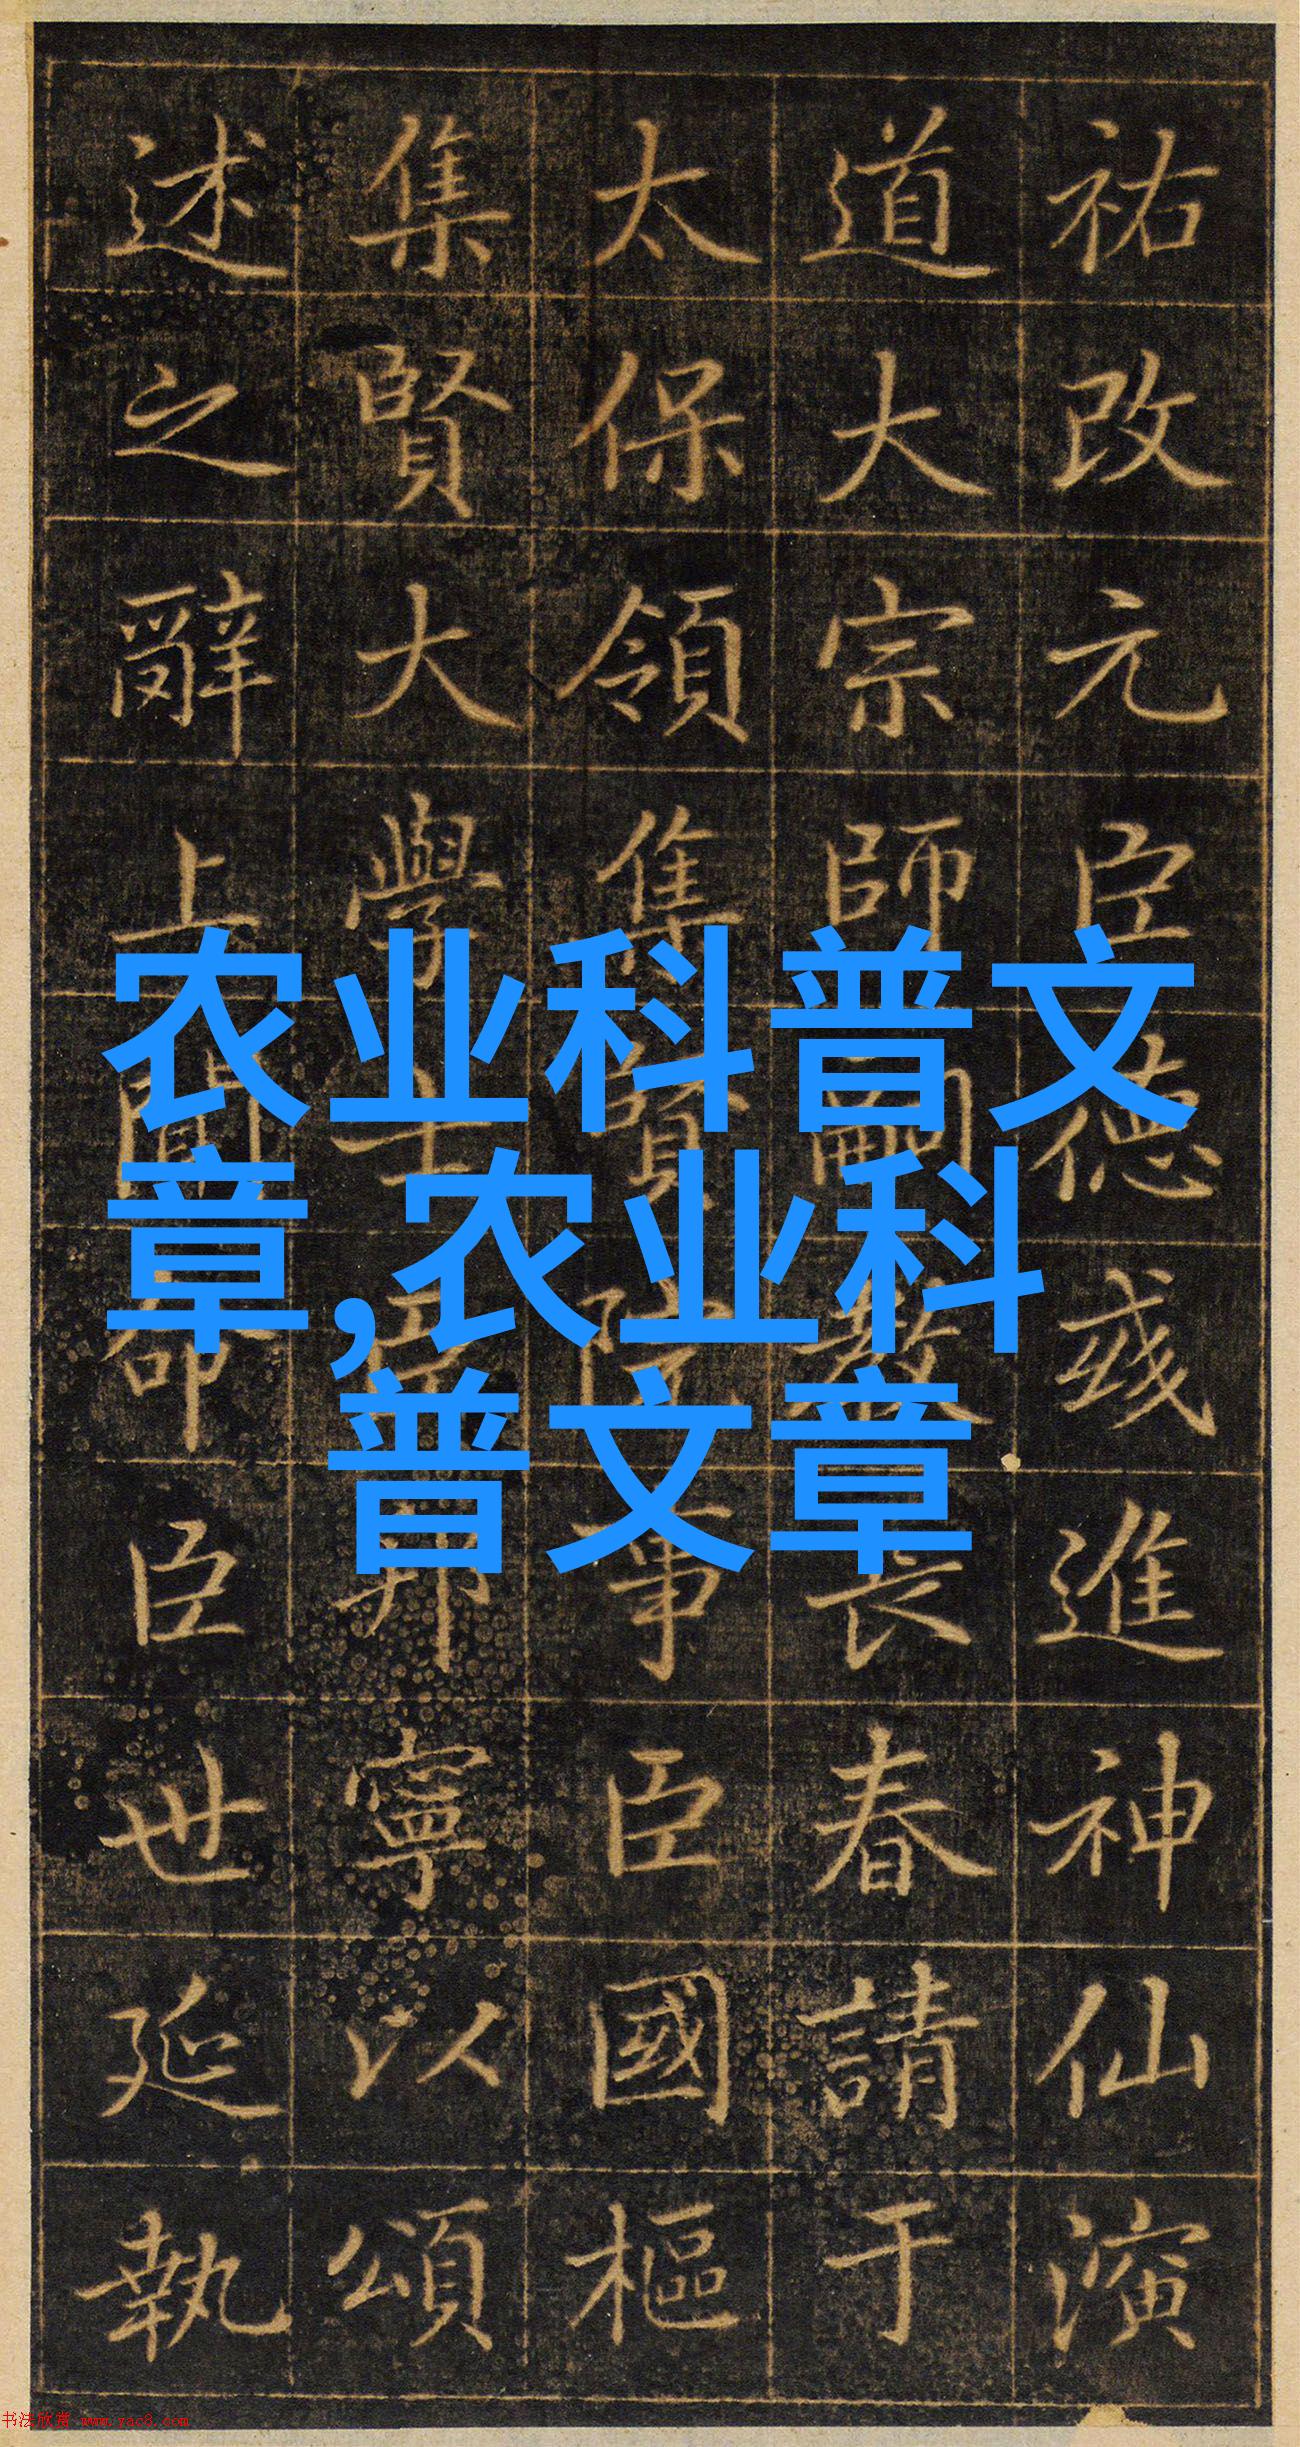 祐改元臣德彧進神仙演
道大宗師嗣教長春請于
太保領集賢院事臣國樞
集賢大學士臣邦寧以頌
述之辭上聞命臣世延執
农业科普文
章,农业科
普文章
书法欣赏 www.yac8.com